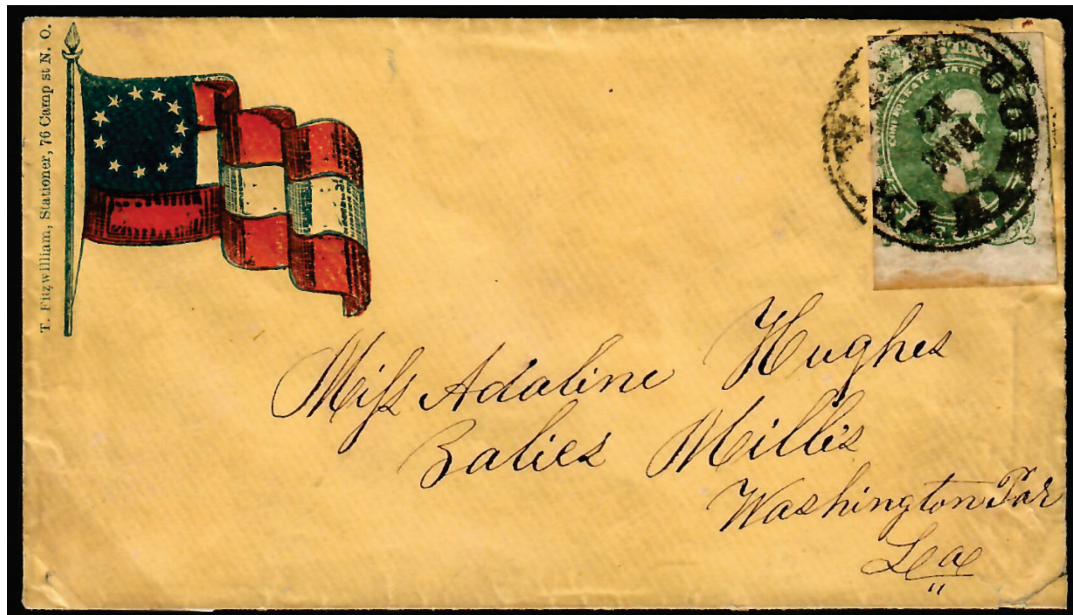 T. Fitzwilliam, Stationer, 76 Camp st N. O.
CONFEDERATE STATES
CAMP MOORE
MAR
Miſs Adaline Hughes
Zalies Millis
Washington Par
Lae